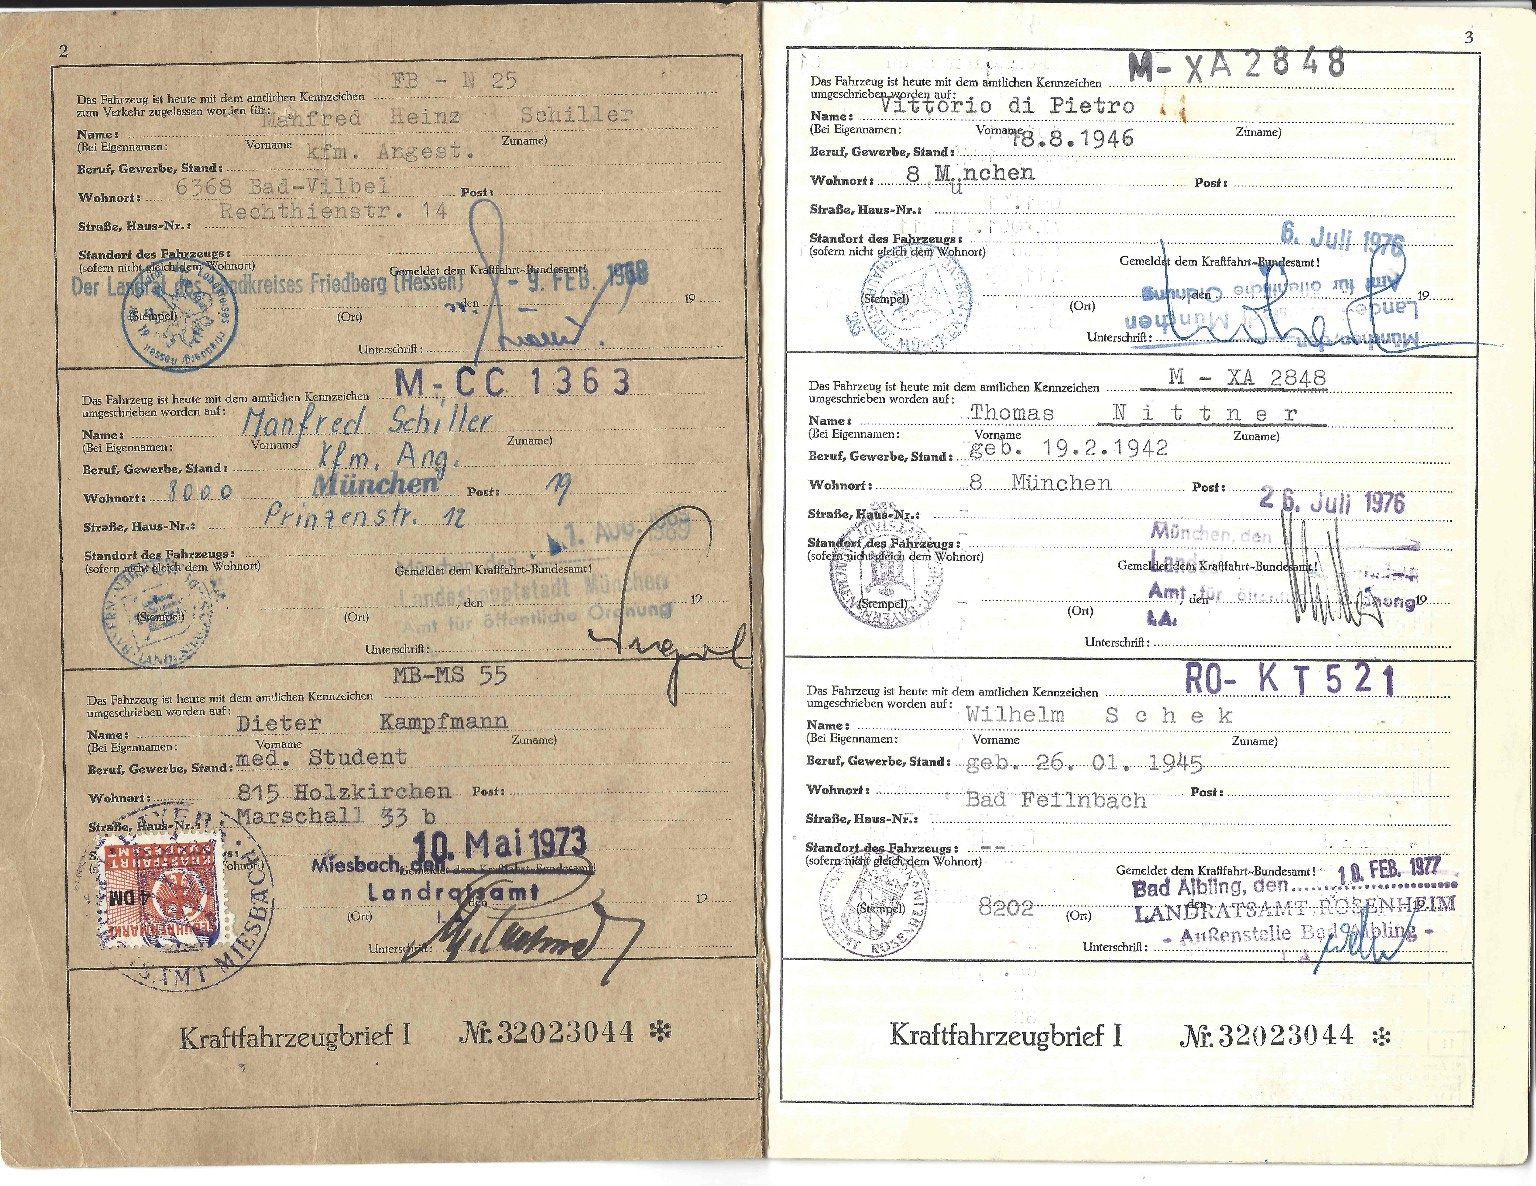 2
FB - N 25
Das Fahrzeug ist heute mit dem amtlichen Kennzeichen
zum Verkehr zugelassen worden für:
Manfred Heinz Schiller
Name:
(Bei Eigennamen: Vorname Zuname)
kfm. Angest.
Beruf, Gewerbe, Stand:
6368 Bad-Vilbel
Wohnort: Post:
Rechthienstr. 14
Straße, Haus-Nr.:
Standort des Fahrzeugs:
(sofern nicht gleich dem Wohnort)
Gemeldet dem Kraftfahrt-Bundesamt!
Der Landrat des Landkreises Friedberg (Hessen) - 9. FEB. 1968
den 19
(Stempel) (Ort)
Unterschrift:
M-CC 1363
Das Fahrzeug ist heute mit dem amtlichen Kennzeichen
umgeschrieben worden auf:
Manfred Schiller
Name:
(Bei Eigennamen: Vorname Zuname)
Kfm. Ang.
Beruf, Gewerbe, Stand:
Wohnort: 8000 München Post: 19
Straße, Haus-Nr.: Prinzenstr. 12
1. Aug. 1969
Standort des Fahrzeugs:
(sofern nicht gleich dem Wohnort)
Gemeldet dem Kraftfahrt-Bundesamt!
Landeshauptstadt München
den 19
Amt für öffentliche Ordnung
(Stempel) (Ort)
Unterschrift:
MB-MS 55
Das Fahrzeug ist heute mit dem amtlichen Kennzeichen
umgeschrieben worden auf:
Dieter Kampfmann
Name:
(Bei Eigennamen: Vorname Zuname)
med. Student
Beruf, Gewerbe, Stand:
815 Holzkirchen
Wohnort: Post:
Marschall 33 b
Straße, Haus-Nr.:
10. Mai 1973
Miesbach, den
Gemeldet dem Kraftfahrt-Bundesamt!
Landratsamt
KRAFTFAHRT
BUNDESAMT
4 DM
GEBÜHRENMARKE
(Ort) 19
Unterschrift:
AMT MIESBACH
Kraftfahrzeugbrief I Nr. 32023044 ✻
3
M-XA 2848
Das Fahrzeug ist heute mit dem amtlichen Kennzeichen
umgeschrieben worden auf:
Vittorio di Pietro
Name:
(Bei Eigennamen: Vorname Zuname)
18.8.1946
Beruf, Gewerbe, Stand:
Wohnort: 8 München Post:
Straße, Haus-Nr.:
6. Juli 1976
Standort des Fahrzeugs:
(sofern nicht gleich dem Wohnort)
Gemeldet dem Kraftfahrt-Bundesamt!
Amt für öffentliche Ordnung
den 19
(Stempel) (Ort)
München
Unterschrift:
M - XA 2848
Das Fahrzeug ist heute mit dem amtlichen Kennzeichen
umgeschrieben worden auf:
Thomas Nittner
Name:
(Bei Eigennamen: Vorname Zuname)
geb. 19.2.1942
Beruf, Gewerbe, Stand:
8 München
Wohnort: Post:
26. Juli 1976
Straße, Haus-Nr.:
München, den
Standort des Fahrzeugs:
(sofern nicht gleich dem Wohnort)
Gemeldet dem Kraftfahrt-Bundesamt!
Amt für öffentliche Ordnung
den 19
(Stempel) (Ort)
I.A.
Unterschrift:
RO-KT 521
Das Fahrzeug ist heute mit dem amtlichen Kennzeichen
umgeschrieben worden auf:
Wilhelm Schek
Name:
(Bei Eigennamen: Vorname Zuname)
Beruf, Gewerbe, Stand: geb. 26. 01. 1945
Wohnort: Post:
Bad Feilnbach
Straße, Haus-Nr.:
Standort des Fahrzeugs: --
(sofern nicht gleich dem Wohnort)
Gemeldet dem Kraftfahrt-Bundesamt!
10. FEB. 1977
Bad Aibling, den
LANDRATSAMT ROSENHEIM
(Stempel) 8202 (Ort)
- Außenstelle Bad Aibling -
Unterschrift:
I. A.
Kraftfahrzeugbrief I Nr. 32023044 ✻